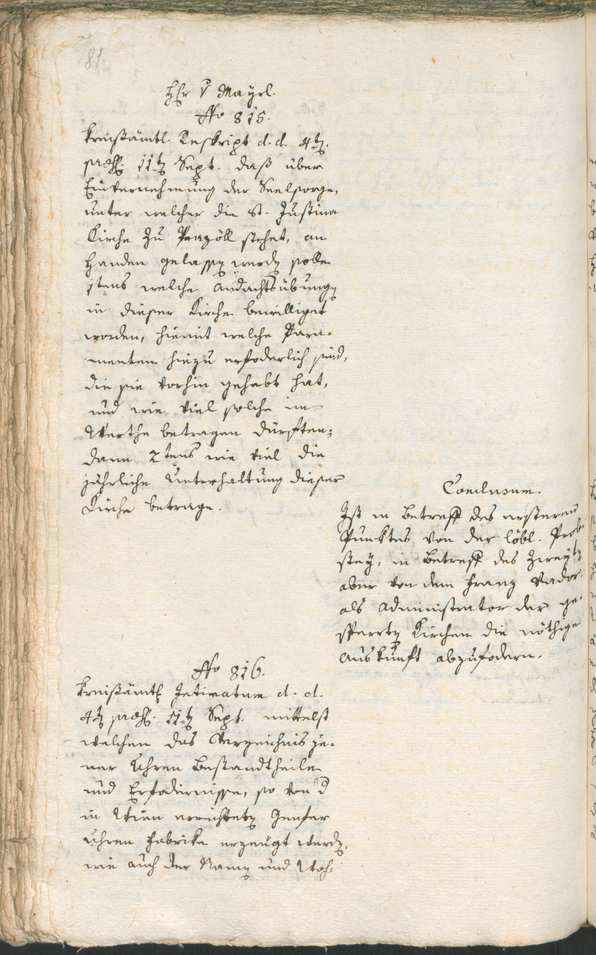 81
Hr v Mayrl.
No 815.
Kreisämtl. Reskript d. d. 4tn
praes. 11tn Sept. daß über
Einvernehmung der Seelsorge,
unter welcher die St. Justina
Kirche zu Prazöll stehet, an
Handen gelassen werdn solle
1tens welche Andachtsübungn
in dieser Kirche bewilliget
worden, hiemit welche Para-
menten hiezu erforderlich sind,
die sie vorhin gehabt hat,
und wie viel solche im
Werthe betragen dürften;
dann 2tens wie viel die
jährliche Unterhaltung dieser
Kirche betrage.
Conclusum.
Ist in Betreff des ersteren
Punktes von der löbl. Prob-
stey, in Betreff des Zweytn
aber von dem Franz
als Administrator der ge-
sperrtn Kirchen die nöthige
Auskunft abzufodern.
No 816.
Kreisämtl Intimatum d. d.
4tn praes. 11tn Sept. mittelst
welchen das Verzeichnis je-
ner Uhren Bestandtheile
und Erfodernisse, so von d
in Wien errichtetn Genfer
Uhren Fabrike erzeugt werdn,
wie auch der Namn und Woh-